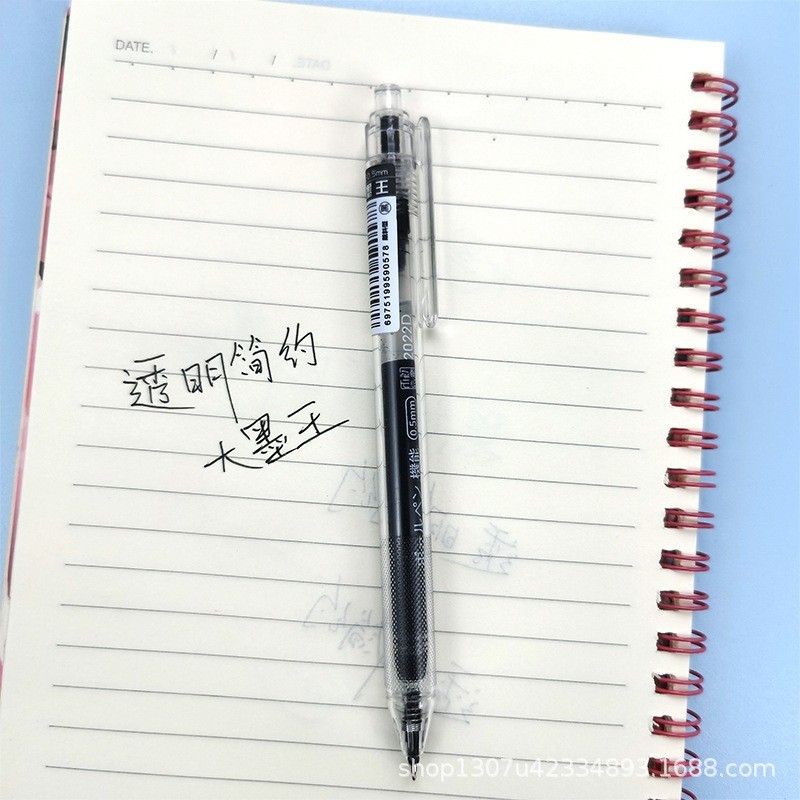 DATE. / /
0.5mm
墨王
6975199590578
2022D
0.5mm
ールペン 機能
透明简约
大墨王
shop1307u42334893.1688.com